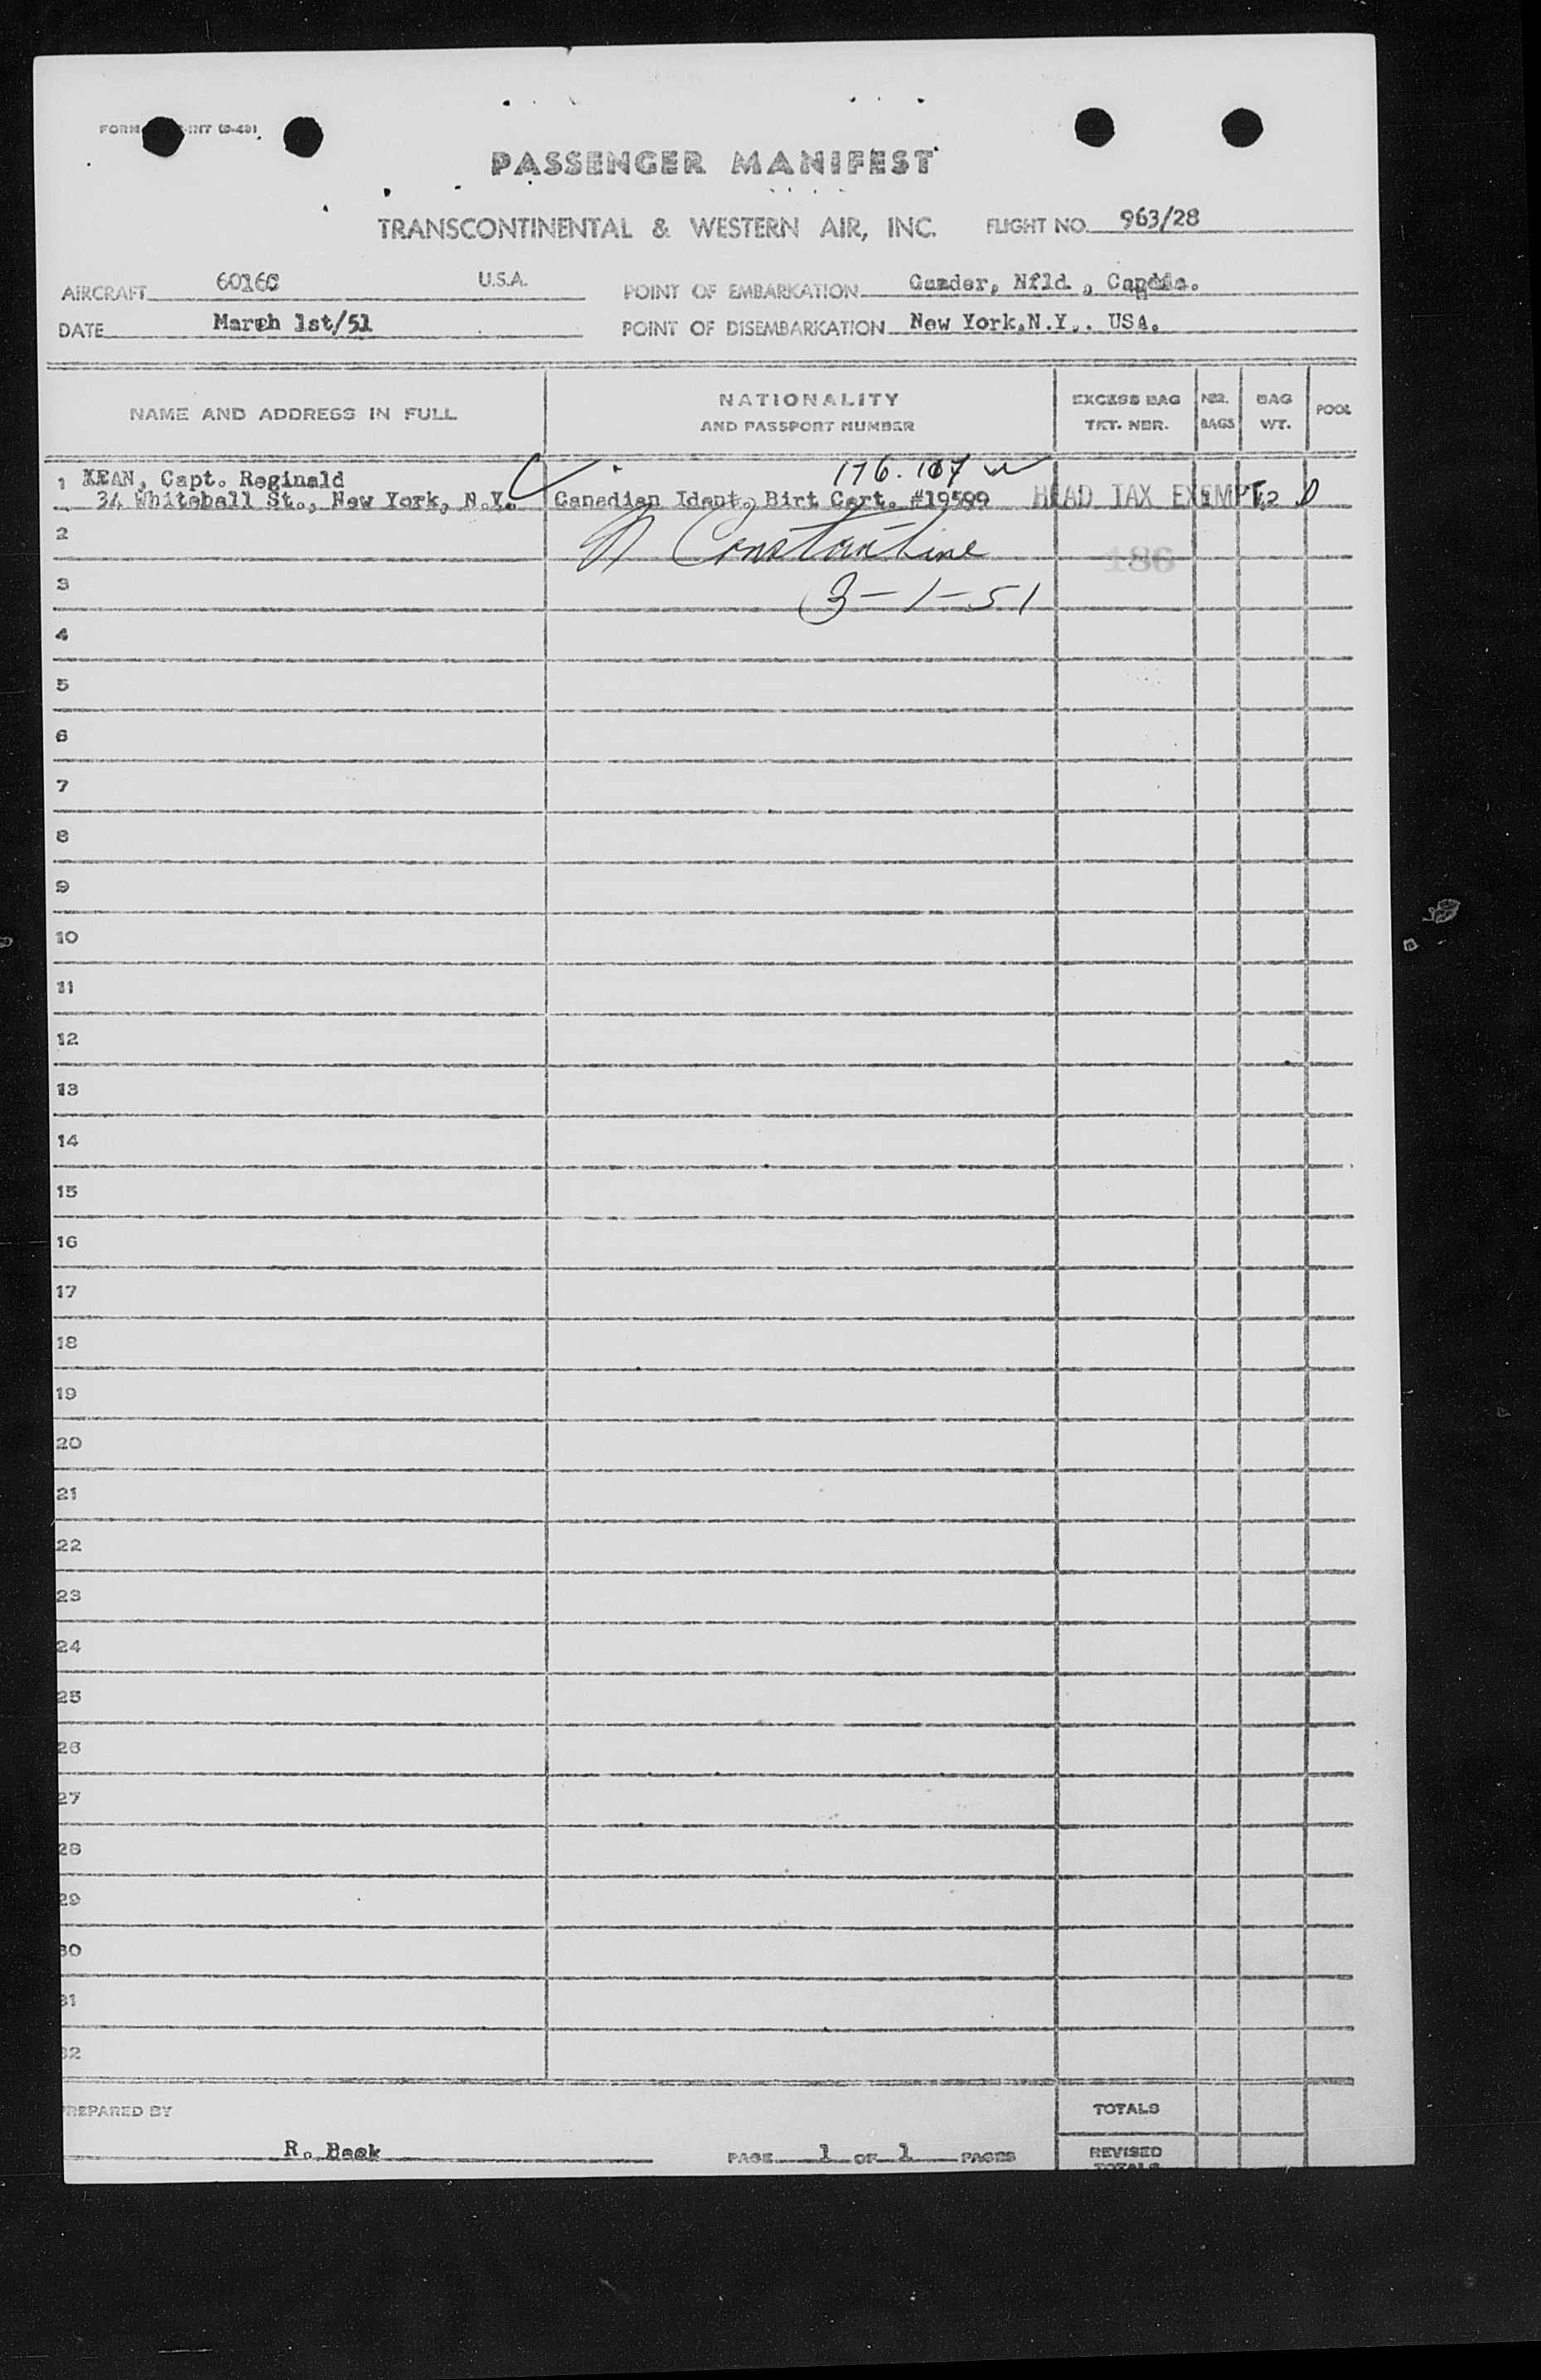 FORM -INT (9-49)
PASSENGER MANIFEST
TRANSCONTINENTAL & WESTERN AIR, INC. FLIGHT NO. 963/28
AIRCRAFT 6016C U.S.A. POINT OF EMBARKATION Gander, Nfld., Canada.
DATE March 1st/51 POINT OF DISEMBARKATION New York,N.Y.. USA.
NAME AND ADDRESS IN FULL NATIONALITY AND PASSPORT NUMBER EXCESS BAG TKT. NBR. NBR. BAGS BAG WT. POOL
176.107
1 KEAN, Capt. Reginald
34 Whitehall St., New York, N.Y. Canadian Ident. Birt Cert. #19599 HEAD TAX EXEMPT
2 Constantine 186
3 3-1-51
4
5
6
7
8
9
10
11
12
13
14
15
16
17
18
19
20
21
22
23
24
25
26
27
28
29
30
31
32
PREPARED BY TOTALS
R. Beek PAGE 1 OF 1 PAGES REVISED TOTALS